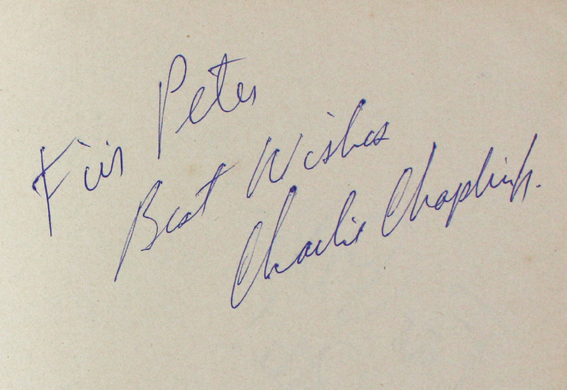 Für Peter
Best Wishes
Charlie Chaplin.